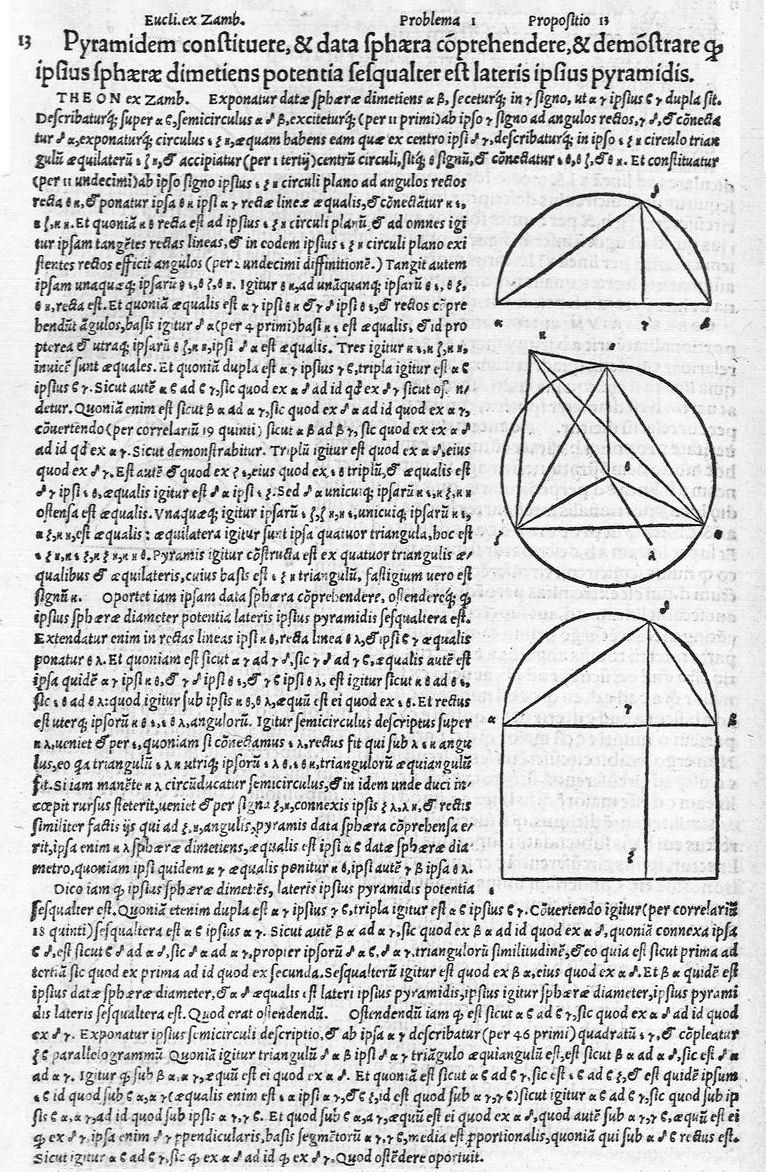 Eucli.ex Zamb. Problema 1 Propositio 13
13 Pyramidem constituere, & data sphæra cõprehendere, & demõstrare ꝙ
ipsius sphæræ dimetiens potentia sesqualter est lateris ipsius pyramidis.
THEON ex Zamb. Exponatur datæ sphæræ dimetiens α β, seceturq́; in γ signo, ut α γ ipsius ϐ γ dupla sit.
Describaturq́; super α ϐ, semicirculus α δ β, exciteturq́; (per 11 primi) ab ipso γ signo ad angulos rectos, γ δ, & cõnecta
tur δ α, exponaturq́; circulus ε ζ η, æquam habens eam quæ ex centro ipsi δ γ, describaturq́; in ipso ε ζ η circulo trian
gulũ æquilaterũ ε ζ η, & accipiatur (per 1 tertij) centrũ circuli, sitq́; θ signũ, & cõnectatur ε θ, θ ζ, & θ η. Et constituatur
(per 11 undecimi) ab ipso signo ipsius ε ζ η circuli plano ad angulos rectos
recta θ κ, & ponatur ipsa θ κ ipsi α γ rectæ lineæ æqualis, & cõnectãtur κ ε,
κ ζ, κ η. Et quoniã κ θ recta est ad ipsius ε ζ η circuli planũ, & ad omnes igi
tur ipsam tangẽtes rectas lineas, & in eodem ipsius ε ζ η circuli plano exi
stentes rectos efficit angulos (per 2 undecimi diffinitionẽ.) Tangit autem
ipsam unaquæq́; ipsarũ θ ε, θ ζ, θ η. Igitur θ κ, ad unãquanq́; ipsarũ θ ε, θ ζ,
θ η, recta est. Et quoniã æqualis est α γ ipsi θ κ & γ δ ipsi θ ε, & rectos cõpre
hendũt ãgulos, basis igitur δ α (per 4 primi) basi κ ε est æqualis, & id pro
pterea & utraq́; ipsarũ θ ζ, κ η, ipsi δ α est æqualis. Tres igitur κ ε, κ ζ, κ η,
inuicẽ sunt æquales. Et quoniã dupla est α γ ipsius γ ϐ, tripla igitur est α ϐ
ipsius ϐ γ. Sicut autẽ α ϐ ad ϐ γ, sic quod ex α δ ad id qd ex δ γ sicut ostẽ
detur. Quoniã enim est sicut β α ad α γ, sic quod ex δ α ad id quod ex α γ,
cõuertendo (per correlariũ 19 quinti) sicut α β ad β γ, sic quod ex α δ
ad id qd ex δ γ. Sicut demonstrabitur. Triplũ igitur est quod ex α δ, eius
quod ex δ γ. Est autẽ & quod ex ζ ε, eius quod ex ε θ triplũ, & æqualis est
δ γ ipsi ε θ, æqualis igitur est δ α ipsi ε ζ. Sed δ α unicuiq́; ipsarũ κ ε, κ ζ, κ η
ostensa est æqualis. Vnaquæq́; igitur ipsarũ ε ζ, ζ η, η ε, unicuiq́; ipsarũ κ ε,
κ ζ, κ η, est æqualis: æquilatera igitur sunt ipsa quatuor triangula, hoc est
ε ζ η, κ ε ζ, κ ζ η, κ η ε. Pyramis igitur cõstructa est ex quatuor triangulis æ-
qualibus & æquilateris, cuius basis est ε ζ η triangulũ, fastigium uero est
signũ κ. Oportet iam ipsam data sphæra cõprehendere, ostendereq́; ꝙ
ipsius sphæræ diameter potentia lateris ipsius pyramidis sesqualtera est.
Extendatur enim in rectas lineas ipsi κ θ, recta linea θ λ, & ipsi ϐ γ æqualis
ponatur θ λ. Et quoniam est sicut α γ ad γ δ, sic γ δ ad γ ϐ, æqualis autẽ est
ipsa quidẽ α γ ipsi κ θ, & γ δ ipsi θ ε, & γ ϐ ipsi θ λ, est igitur sicut κ θ ad θ ε,
sic ε θ ad θ λ: quod igitur sub ipsis κ θ, θ λ, æquũ est ei quod ex ε θ. Et rectus
est uterq́; ipsorũ κ θ ε, ε θ λ, angulorũ. Igitur semicirculus descriptus super
κ λ, ueniet & per ε, quoniam si cõnectamus ε λ, rectus fit qui sub λ ε κ angu
lus, eo qa triangulũ ε λ κ utriq́; ipsorũ ε λ θ, ε θ κ, triangulorũ æquiangulũ
fit. Si iam manẽte κ λ circũducatur semicirculus, & in idem unde duci in-
cœpit rursus steterit, ueniet & per signa ζ, η, connexis ipsis ζ λ, λ η, & rectis
similiter factis ijs qui ad ζ, η, angulis, pyramis data sphæra cõprehensa e-
rit, ipsa enim κ λ sphæræ dimetiens, æqualis est ipsi α ϐ datæ sphæræ dia
metro, quoniam ipsi quidem α γ æqualis ponitur κ θ, ipsi autẽ γ β ipsa θ λ.
Dico iam ꝙ ipsius sphæræ dimetiẽs, lateris ipsius pyramidis potentia
sesqualter est. Quoniã etenim dupla est α γ ipsius γ ϐ, tripla igitur est α ϐ ipsius ϐ γ. Cõuertendo igitur (per correlariũ
18 quinti) sesqualtera est α ϐ ipsius α γ. Sicut autẽ β α ad α γ, sic quod ex β α ad id quod ex α δ, quoniã connexa ipsa
ϐ δ, est sicut ϐ δ ad α δ, sic δ α ad α γ, propter ipsorũ δ α ϐ, δ α γ, triangulorũ similitudinẽ, & eo quia est sicut prima ad
tertiã sic quod ex prima ad id quod ex secunda. Sesqualterũ igitur est quod ex β α, eius quod ex α δ. Et β α quidẽ est
ipsius datæ sphæræ diameter, & α δ æqualis est lateri ipsius pyramidis, ipsius igitur sphæræ diameter, ipsius pyrami
dis lateris sesqualtera est. Quod erat ostendendũ. Ostendendũ iam ꝙ est sicut α ϐ ad ϐ γ, sic quod ex α δ ad id quod
ex δ γ. Exponatur ipsius semicirculi descriptio, & ab ipsa α γ describatur (per 46 primi) quadratũ ε γ, & cõpleatur
ζ ϐ parallelogrammũ. Quoniã igitur triangulũ δ α β ipsi δ α γ triãgulo æquiangulũ est, est sicut β α ad α δ, sic est δ α
ad α γ. Igitur ꝙ sub β α, α γ, æquũ est ei quod ex α δ. Et quoniã est sicut α ϐ ad ϐ γ, sic est ε ϐ ad ϐ ζ, & est quidẽ ipsum
ε ϐ id quod sub ϐ α, α γ (æqualis enim est ε α ipsi α γ, & ϐ ζ, id est quod sub α γ, γ ϐ) sicut igitur α ϐ ad ϐ γ, sic quod sub ip
sis ϐ α, α γ, ad id quod sub ipsis α γ, γ ϐ. Et quod sub ϐ α, α γ, æquũ est ei quod ex α δ, quod autẽ sub α γ, γ ϐ, æquũ est ei
ꝙ ex δ γ, ipsa enim δ γ ppendicularis, basis segmẽtorũ α γ, γ ϐ, media est pportionalis, quoniã qui sub α δ ϐ rectus est.
Sicut igitur α ϐ ad ϐ γ, sic ꝙ ex α δ ad id ꝙ ex δ γ. Quod ostẽdere oportuit.
δ
α γ β
κ ε
θ
ζ η
λ
δ
α γ β
ζ
ε